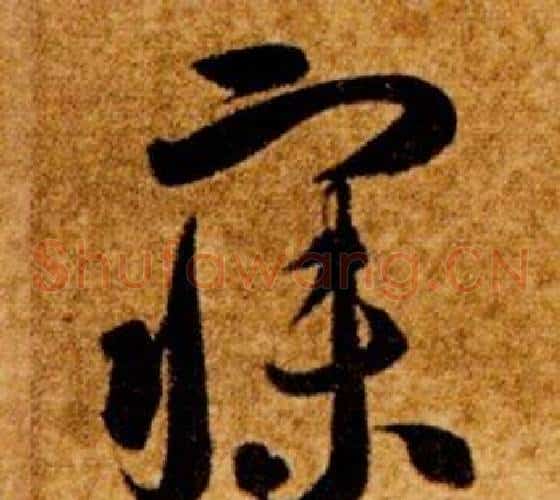 寐
Shufawang.CN